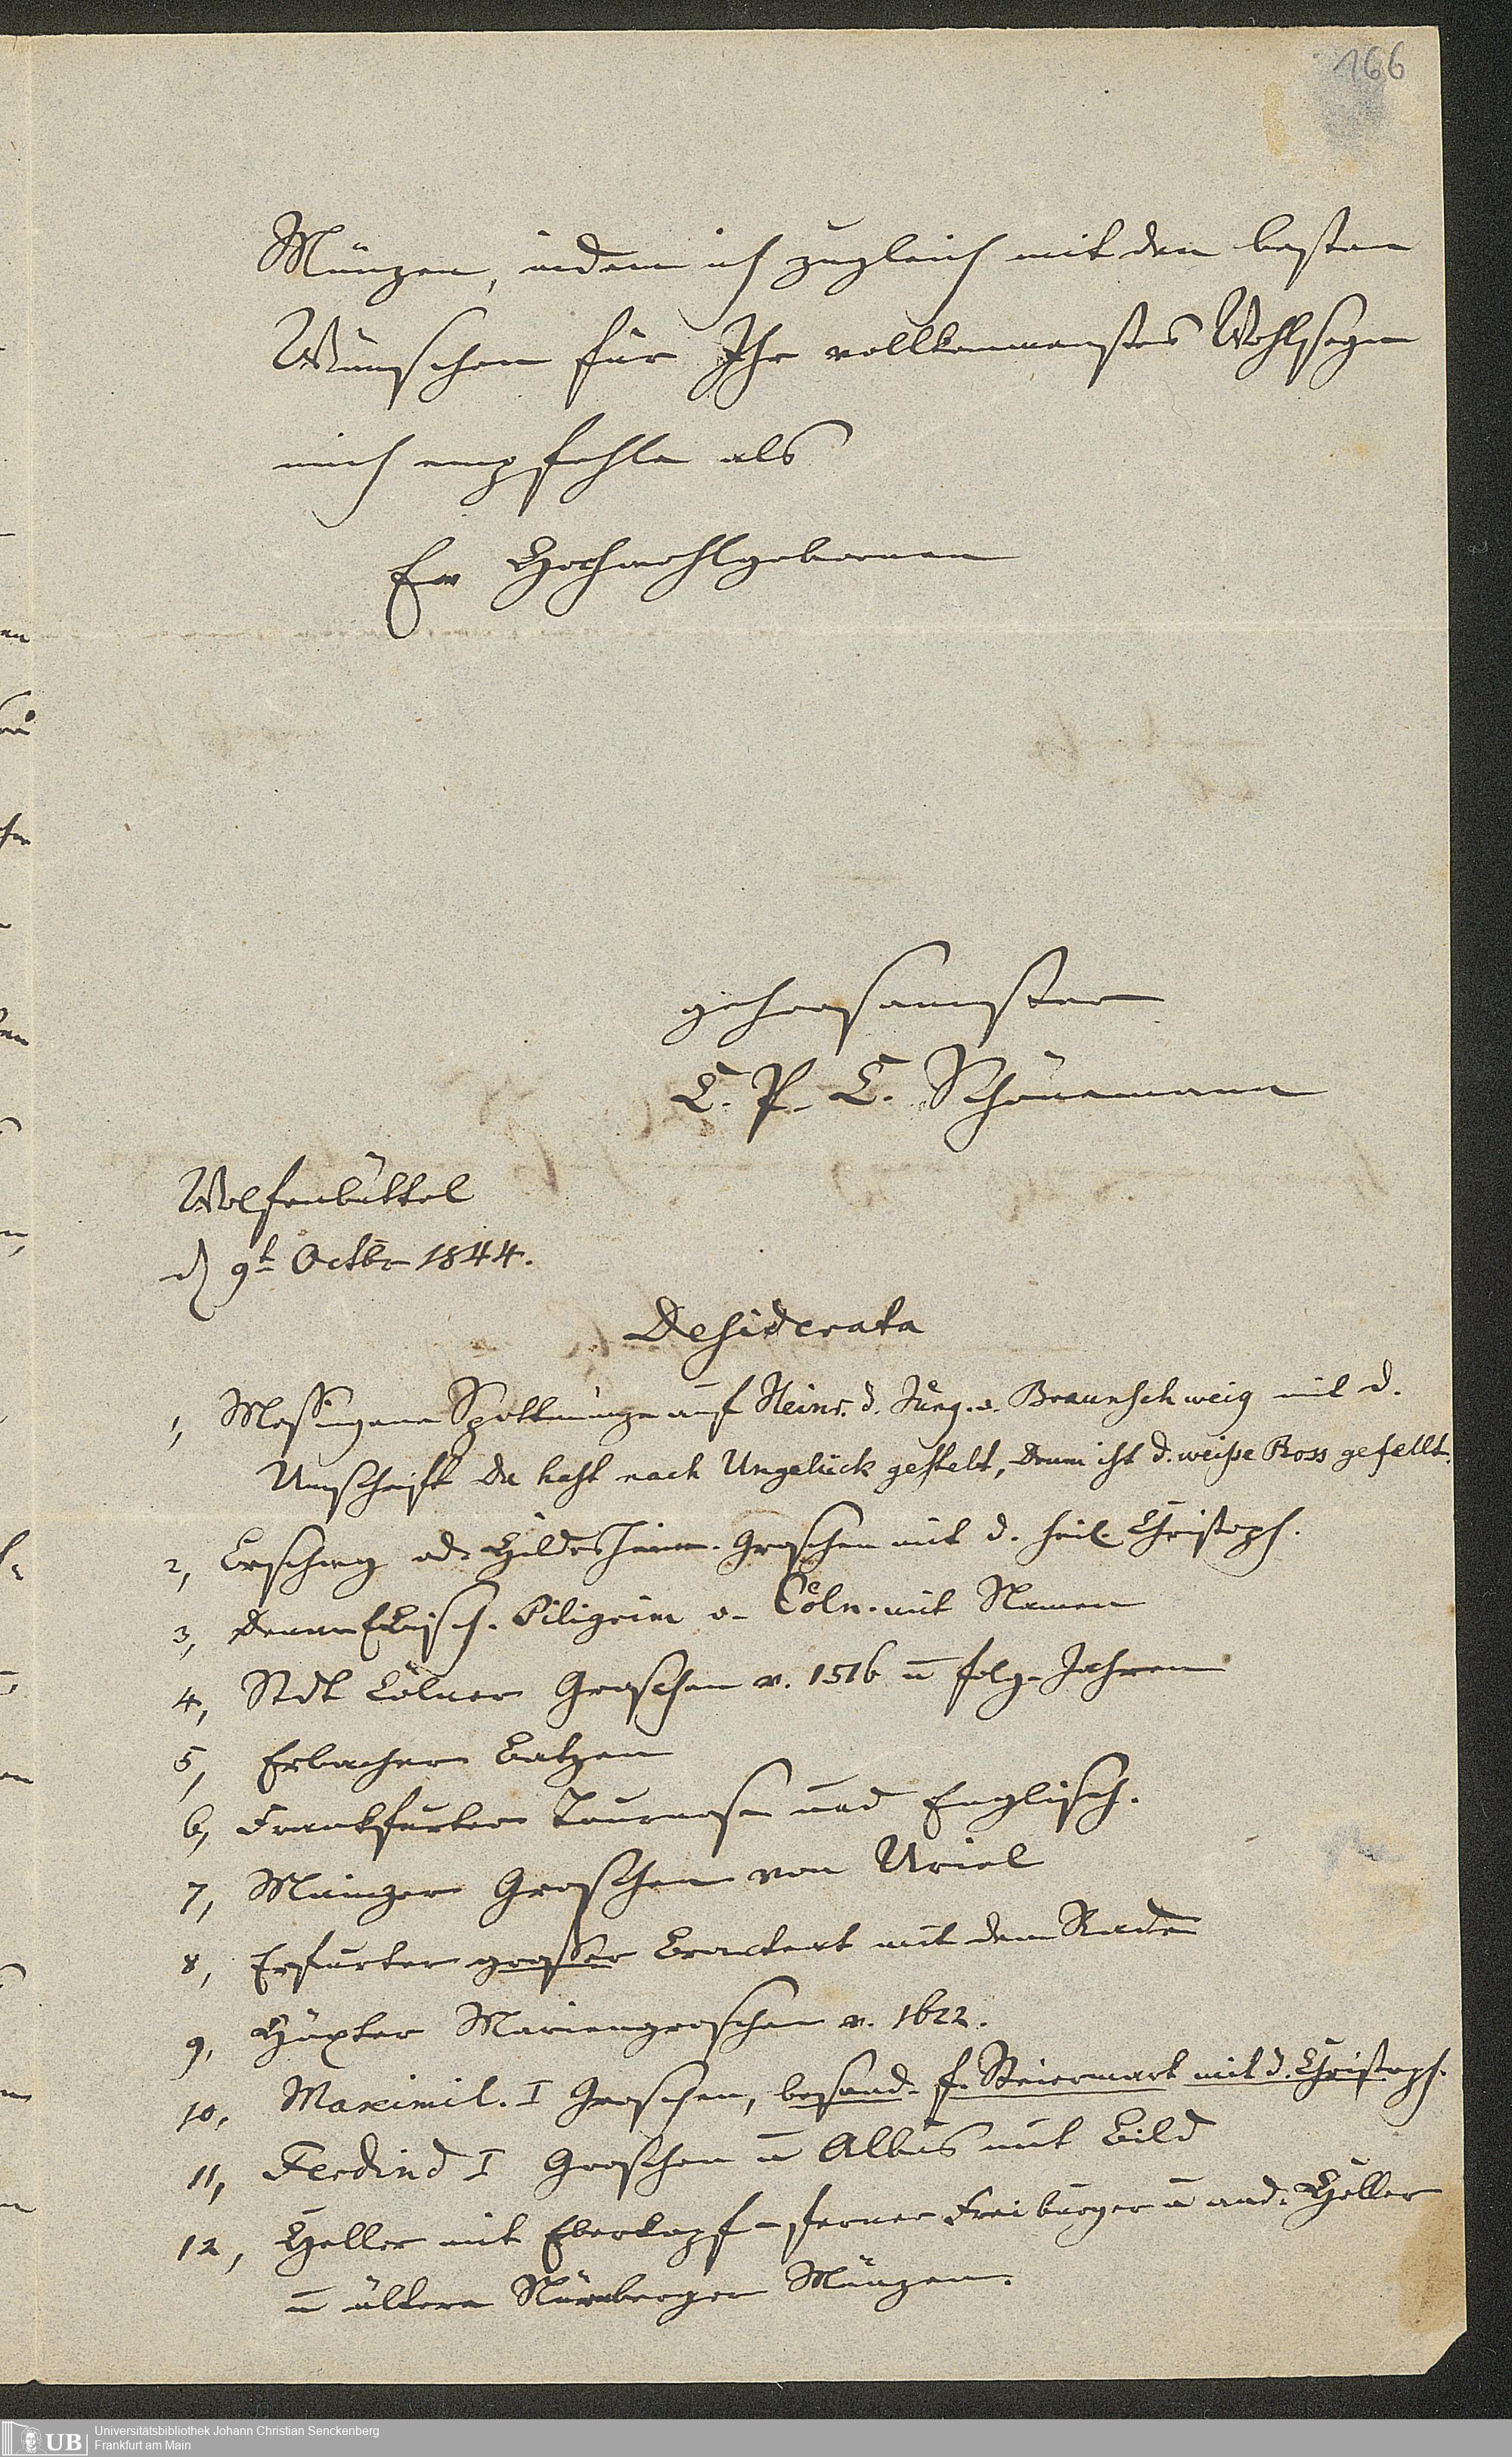 166
Münzen, indem ich zugleich mit den besten
Wünschen für Ihr vollkommenstes Wohlseyn
mich empfehle als
Ew Hochwohlgebornen
gehorsamster
C. P. C. Schönemann
Wolfenbüttel
d 9t Octbr 1844.
Desiderata
1, Messingene Spottmünze auf Heinr. d. Jüng. v. Braunschweig mit d.
Umschrift Du hast nach Ungelück gestelt, Drum ist d. weiße Ross gefellt.
2, Brschwg od. Hildesheim. Groschen mit d. heil. Christoph.
3, Denar EBisch. Piligrim v. Cöln. mit Namen
4, Stdt Cölner Groschen v. 1516 u folg. Jahren
5, Erbacher Batzen
6, Frankfurter Turnose und Englisch.
7, Mainzer Groschen von Uriel
8, Erfurter grosser Bracteat mit dem Rade
9, Höxter Mariengroschen v. 1622.
10, Maximil. I Groschen, besond. f. Steiermark mit d. Christoph.
11, Ferdind I Groschen u Albus mit Bild
12, Heller mit Eberkopf - ferner Freiburger u and. Heller
u ältere Nürnberger Münzen.
UB
Universitätsbibliothek Johann Christian Senckenberg
Frankfurt am Main